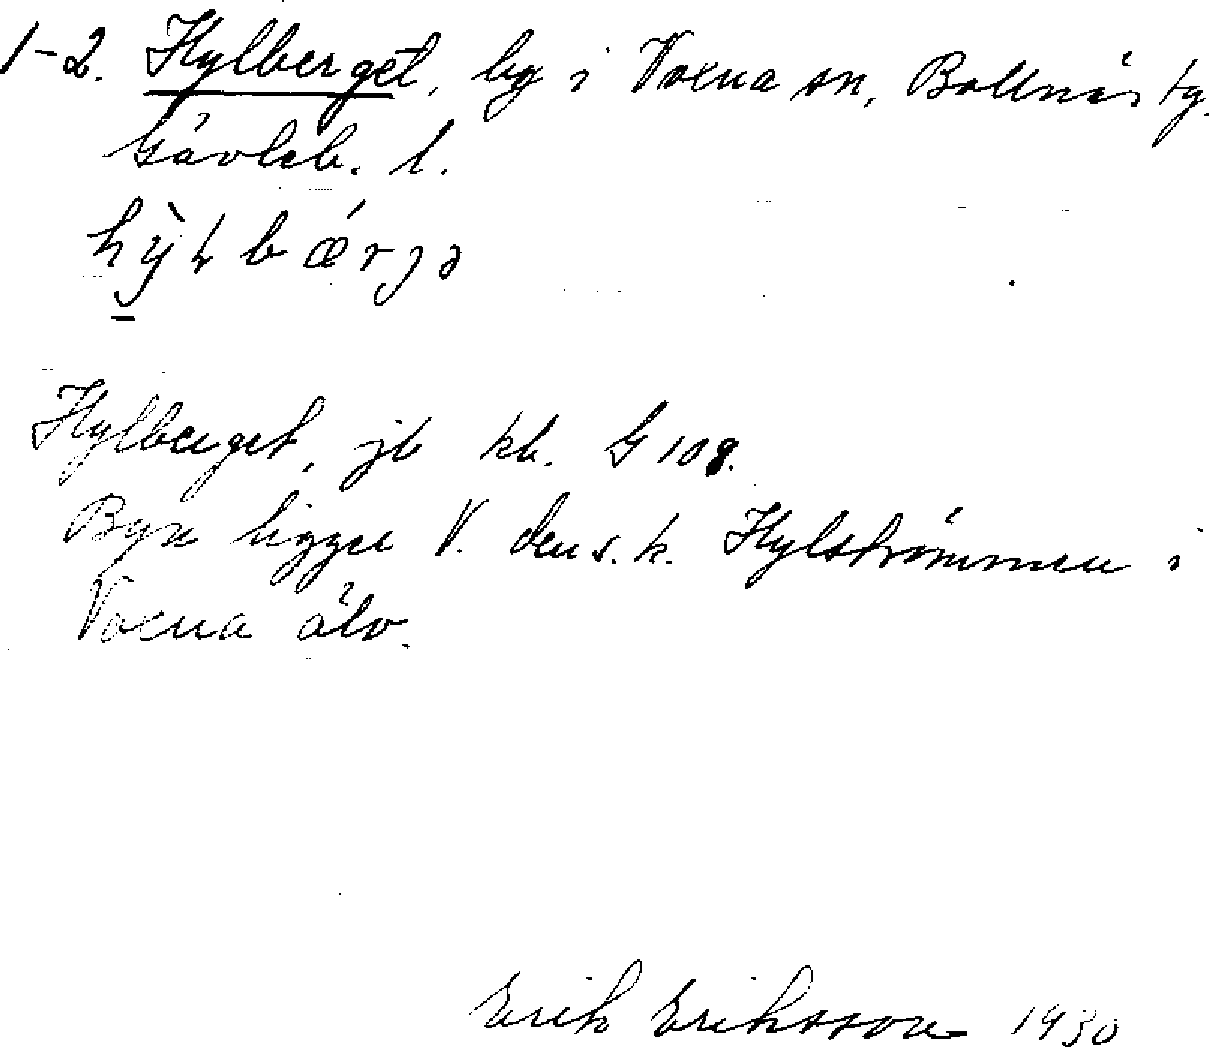 1-2. Hylberget, by i Voxna sn, Bollnäs tg.
Gävleb. l.
Hylberget, jb kb. G 108.
Byn ligger V. den s.k. Hylströmmen i
Voxna älv.
Erik Eriksson 1930